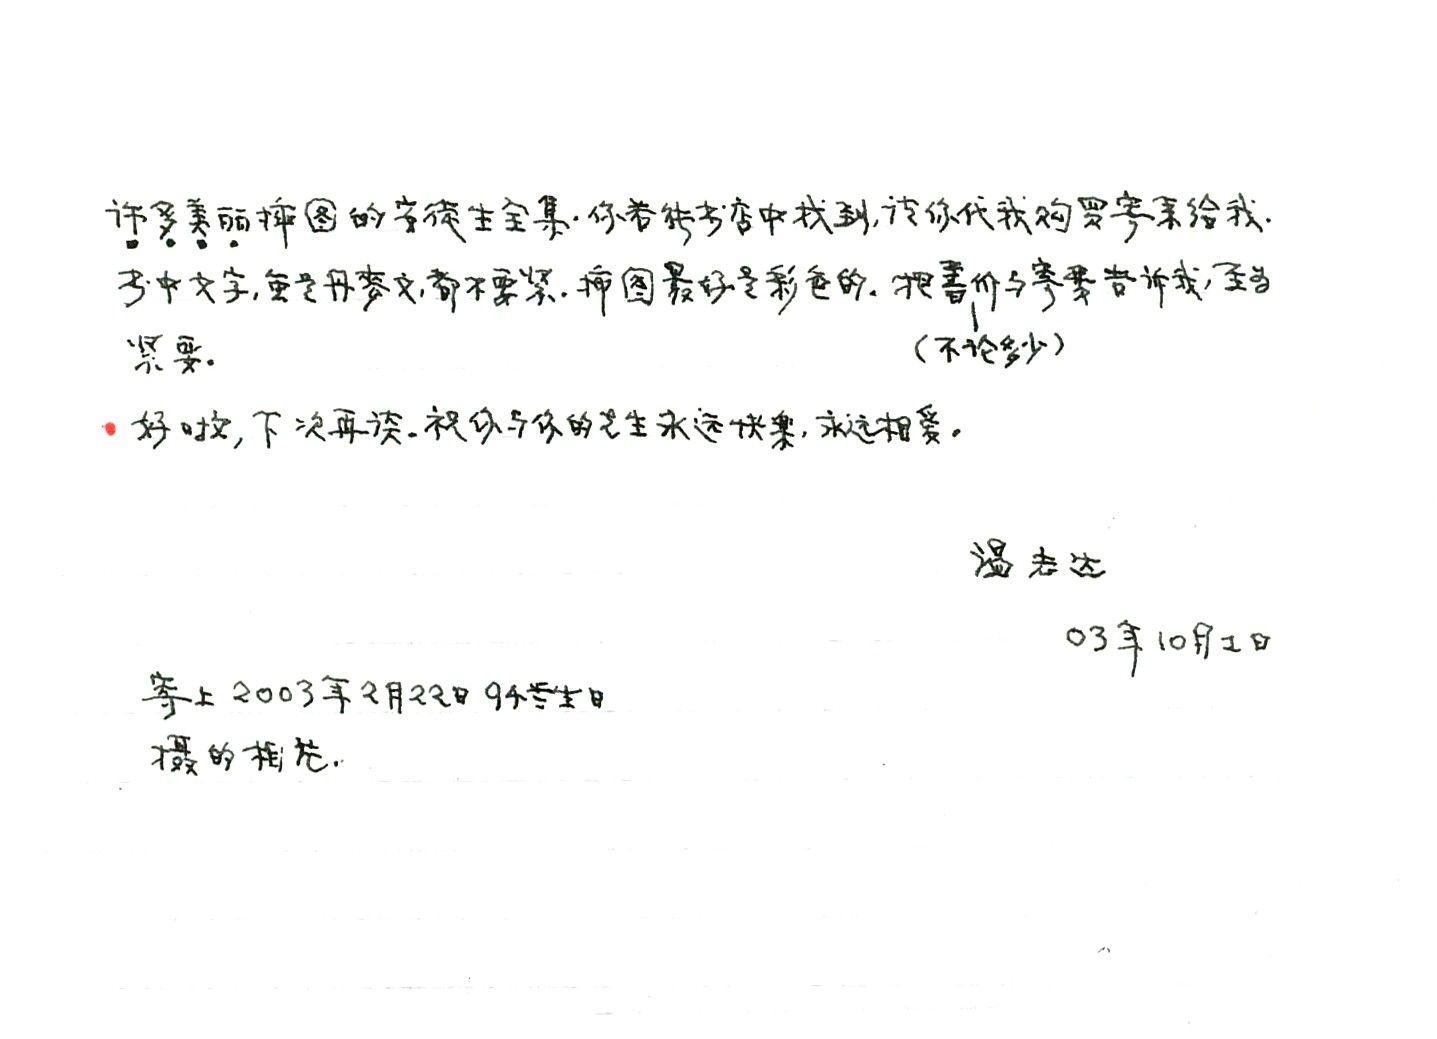 许多美丽插图的安徒生全集.你若能书店中找到,请你代我购买寄来给我.
书中文字,虽是丹麥文,都不要紧.插图最好是彩色的.把書价与寄费告诉我,至为
(不论多少)
紧要。
好啦,下次再谈.祝你与你的先生永远快樂,永远相爱。
温志达
03年10月1日
寄上2003年2月22日94岁生日
摄的相片.